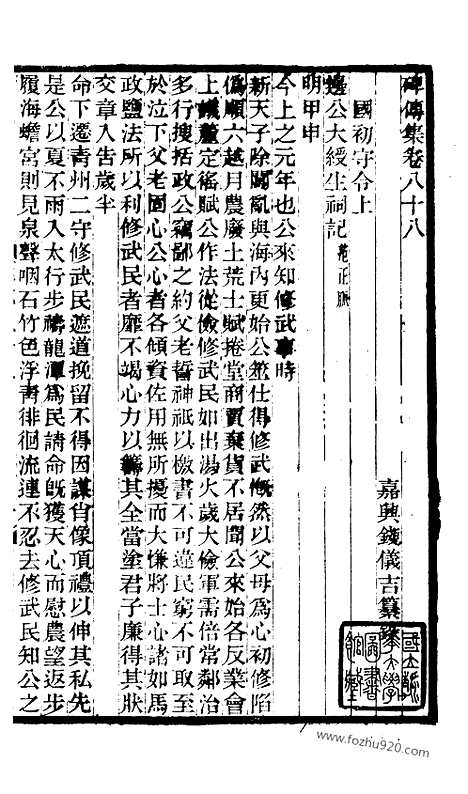 碑傳集卷八十八
嘉興錢儀吉纂錄
國初守令上
邊公大綬生祠記 范正脈
明甲申
今上之元年也公來知修武事時
新天子除闖亂與海內更始公筮仕得修武慨然以父母爲心初修陷
僞順六越月農廢土荒士賦捲堂商賈棄貨不居聞公來始各反業會
上議釐定徭賦公作法從儉修武民如出湯火歲大儉軍需倍常鄰治
多行搜括政公竊鄙之約父老誓神祇以檄書不可違民窮不可取至
於泣下父老固心公心者各傾資佐用無所擾而大慊將士心諸如馬
政鹽法所以利修武民者靡不竭心力以籌其全當塗君子廉得其狀
交章入告歲半
命下遷靑州二守修武民遮道挽留不得因謀肖像頂禮以伸其私先
是公以夏不雨入太行步禱龍潭爲民請命旣獲天心而慰農望返步
履海蟾宮則見泉聲咽石竹色浮靑徘徊流連不忍去修武民知公之
國立
大學
圖書
館藏
www.fozhu920.com